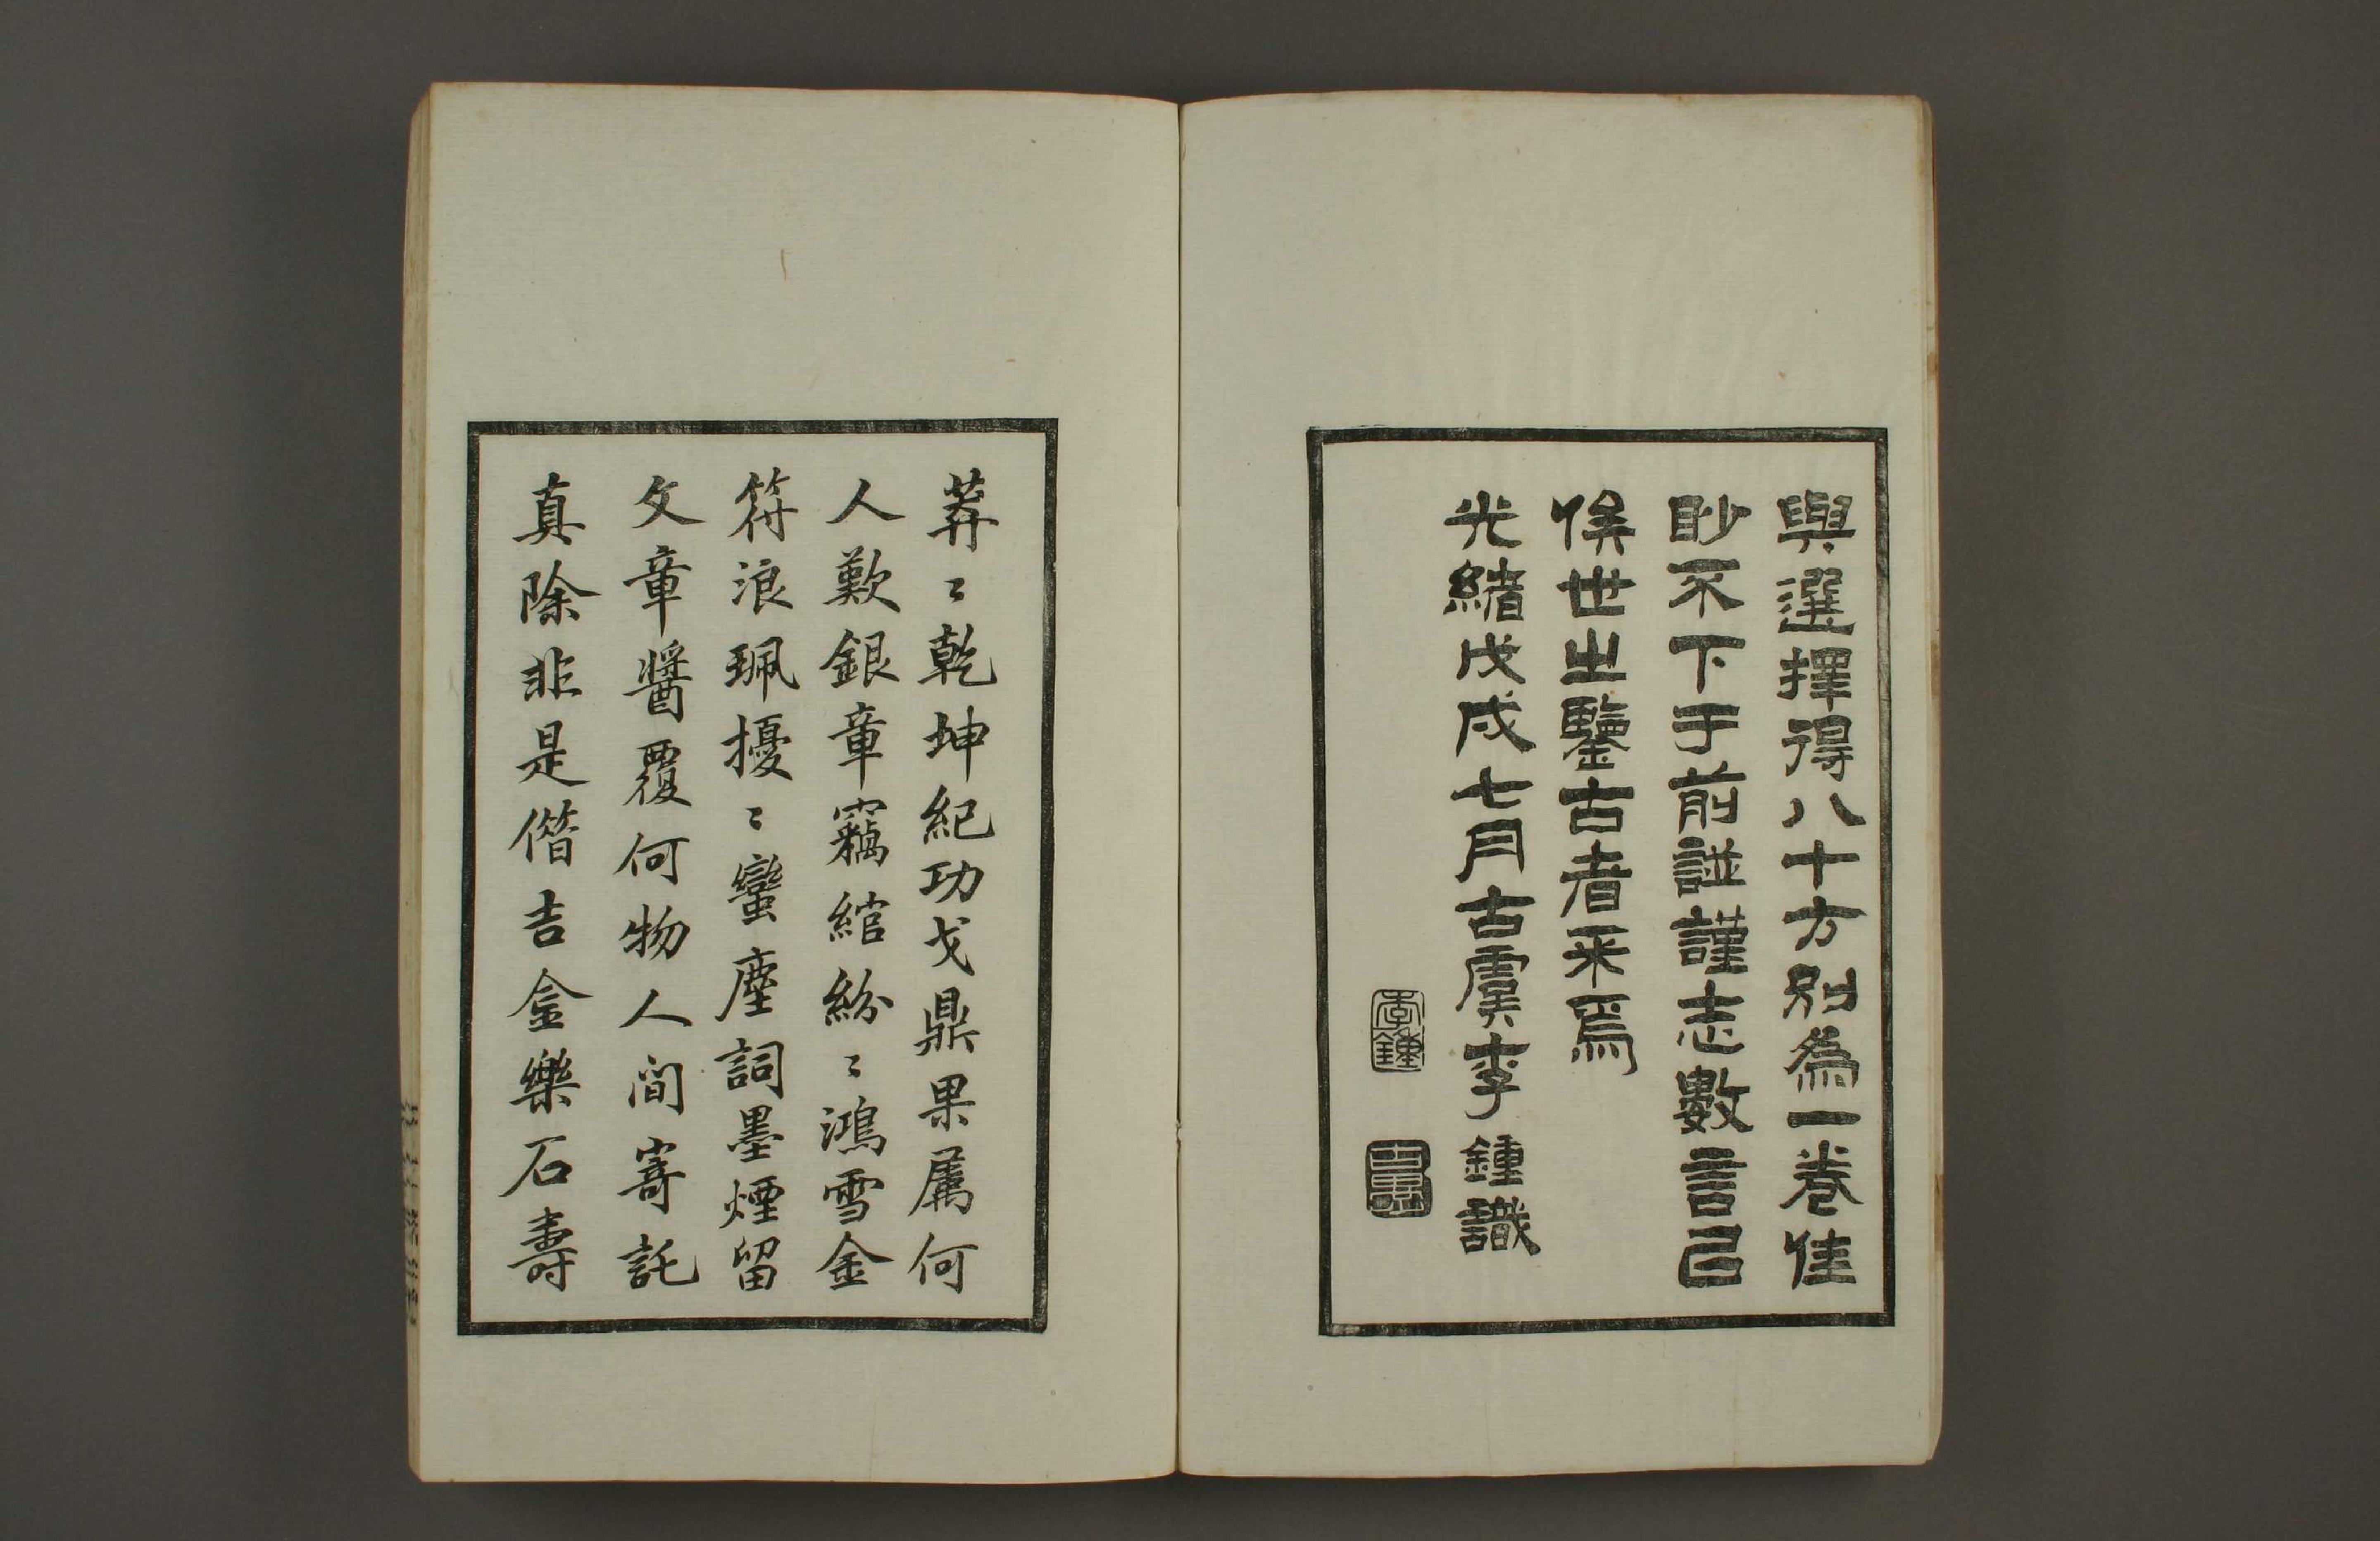 與選擇得八十方別為一卷佳
眇不下于前謹謹志數言㠯
俟世之鑒古者采焉
光緒戊戌七月古虞李鍾識
李鍾
莽〻乾坤紀功戈鼎果屬何
人歎銀章竊綰紛〻鴻雪金
符浪珮擾〻蠻塵詞墨煙留
文章醬覆何物人間寄託
真除非是偕吉金樂石壽